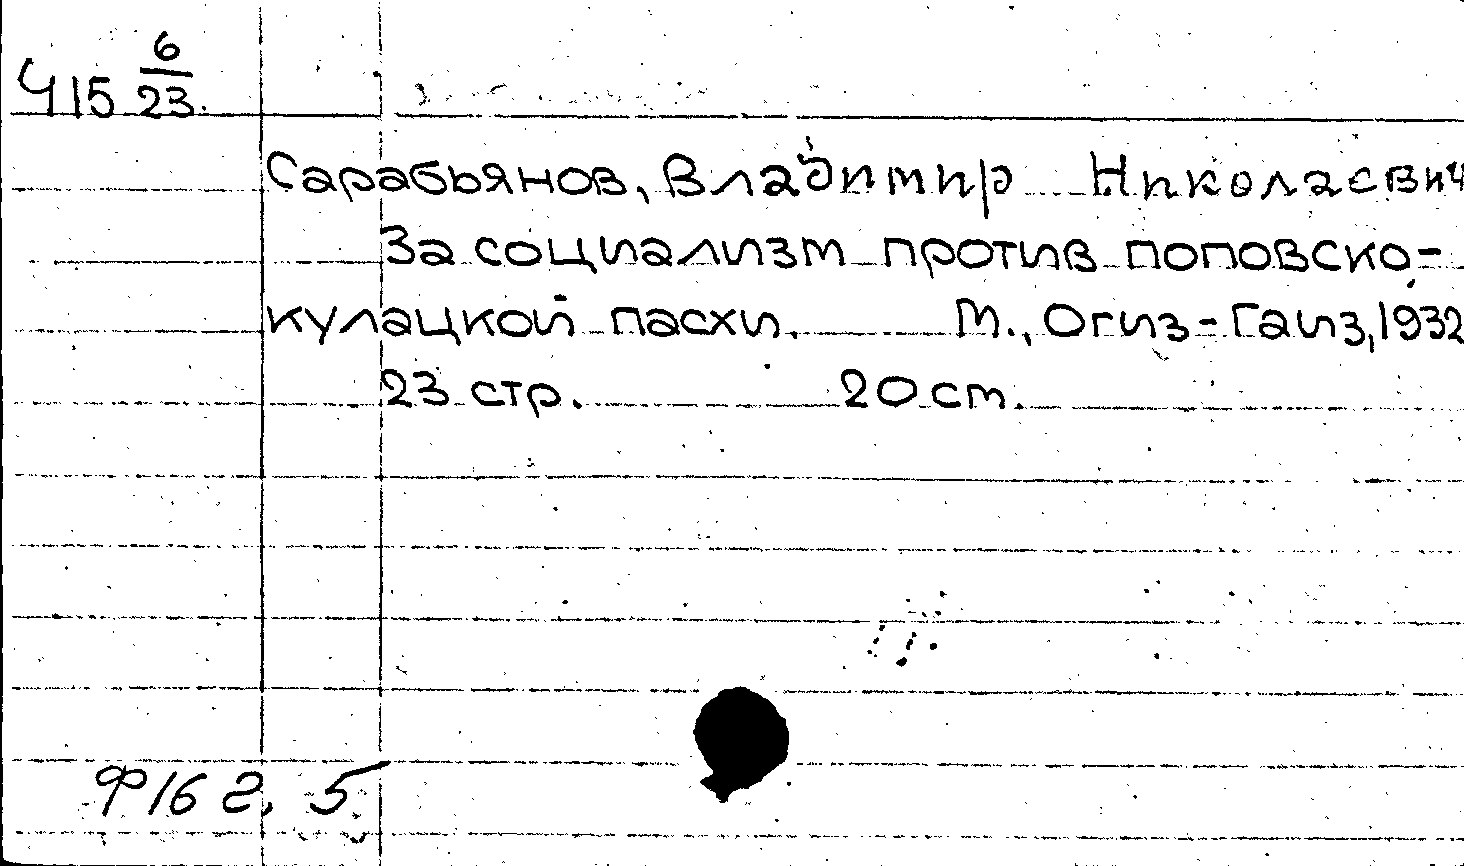 Ч15 6/23.
Сарабьянов, Владимир Николаевич
За социализм против поповско-
кулацкой пасхи. М., Огиз-Гаиз, 1932
23 стр. 20 cm.
Ф16 г. 5